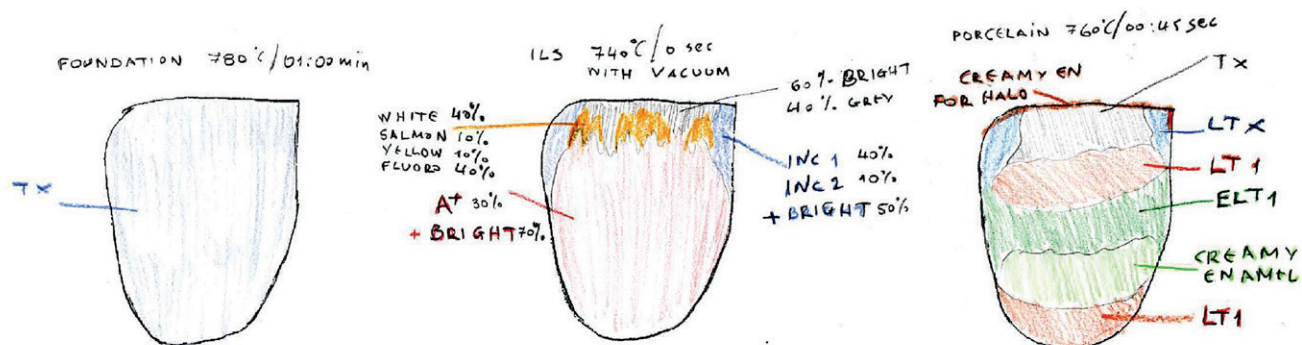 FOUNDATION 780°C/01:00 min
TX
ILS 740°C/0 sec
WITH VACUUM
WHITE 40%
SALMON 10%
YELLOW 10%
FLUORO 40%
A+ 30%
+ BRIGHT 70%
60% BRIGHT
40% GREY
INC 1 40%
INC 2 10%
+ BRIGHT 50%
PORCELAIN 760°C/00:45 sec
CREAMY EN
FOR HALO
TX
LTX
LT1
ELT1
CREAMY
ENAMEL
LT1